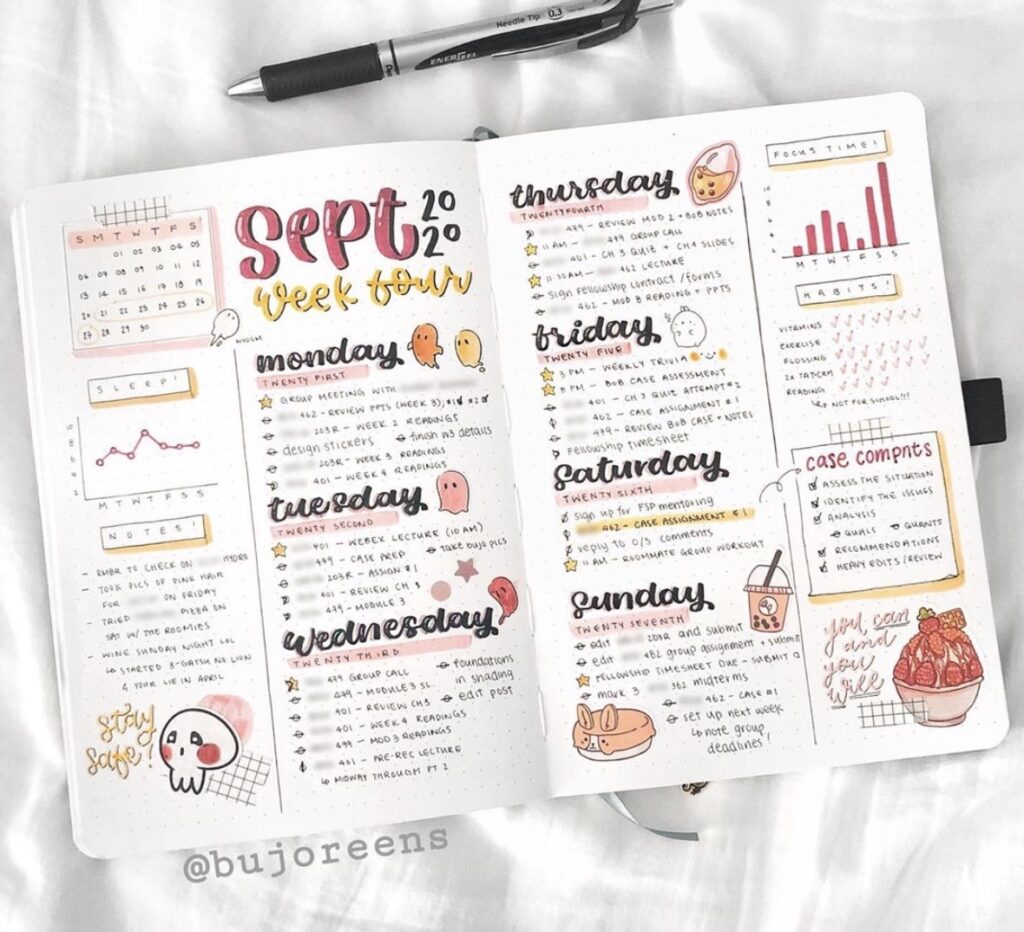 Needle Tip 0.3
ENERGEL
Sept 2020
week four
S M T W T F S
01 02 03 04 05
06 07 08 09 10 11 12
13 14 15 16 17 18 19
20 21 22 23 24 25 26
27 28 29 30
SLEEP!
10
8
6
4
2
M T W T F S S
NOTES!
- RMBR TO CHECK ON HYDRO
- TOOK PICS OF PINK HAIR
FOR ON FRIDAY
- TRIED PIZZA ON
SAT W/ THE ROOMIES
- WINE SUNDAY NIGHT LOL
↳ STARTED 3-GATSU NO LION
& YOUR LIE IN APRIL
stay
safe!
monday
TWENTY FIRST
GROUP MEETING WITH
462 - REVIEW PPTS (WEEK 3); #1 #2
203R - WEEK 2 READINGS
design stickers finish w3 details
203R - WEEK 3 READINGS
401 - WEEK 4 READINGS
tuesday
TWENTY SECOND
401 - WEBEX LECTURE (10 AM)
499 - CASE PREP take bujo pics
203R - ASSIGN #1
401 - REVIEW CH 3
499 - MODULE 3
wednesday
TWENTY THIRD
499 GROUP CALL foundations
499 - MODULE 3 SL. in shading
401 - REVIEW CH3 edit post
401 - WEEK 4 READINGS
499 - MOD 3 READINGS
401 - PRE-REC LECTURE
↳ MIDWAY THROUGH PT 2
thursday
TWENTYFOURTH
499 - REVIEW MOD 2 + BOB NOTES
11 AM - 499 GROUP CALL
401 - CH 3 QUIZ + CH4 SLIDES
11:30AM - 462 LECTURE
sign fellowship contract/forms
462 - MOD B READING + PPTS
friday
TWENTY FIVE
3 PM - WEEKLY TRIVIA
8 PM - BOB CASE ASSESSMENT
401 - CH 3 QUIZ ATTEMPT #2
462 - CASE ASSIGNMENT #1
499 - REVIEW BOB CASE + NOTES
fellowship timesheet
saturday
TWENTY SIXTH
sign up for FSP mentoring
462 - CASE ASSIGNMENT #1
reply to O/S comments
11 AM - ROOMMATE GROUP WORKOUT
sunday
TWENTY SEVENTH
edit 203R and submit
edit 462 group assignment + submit
FELLOWSHIP TIMESHEET DUE - SUBMIT
mark 3 362 midterms
462 - CASE #1
set up next week
↳ note group
deadlines!
FOCUS TIME!
10
8
6
4
2
M T W T F S S
HABITS!
VITAMINS
EXERCISE
FLOSSING
READING
↳ NOT FOR SCHOOL!!!
case compnts
ASSESS THE SITUATION
IDENTIFY THE ISSUES
ANALYSIS
QUALS QUANTS
RECOMMENDATIONS
HEAVY EDITS/REVIEW
you can
and
you
will
@bujoreens